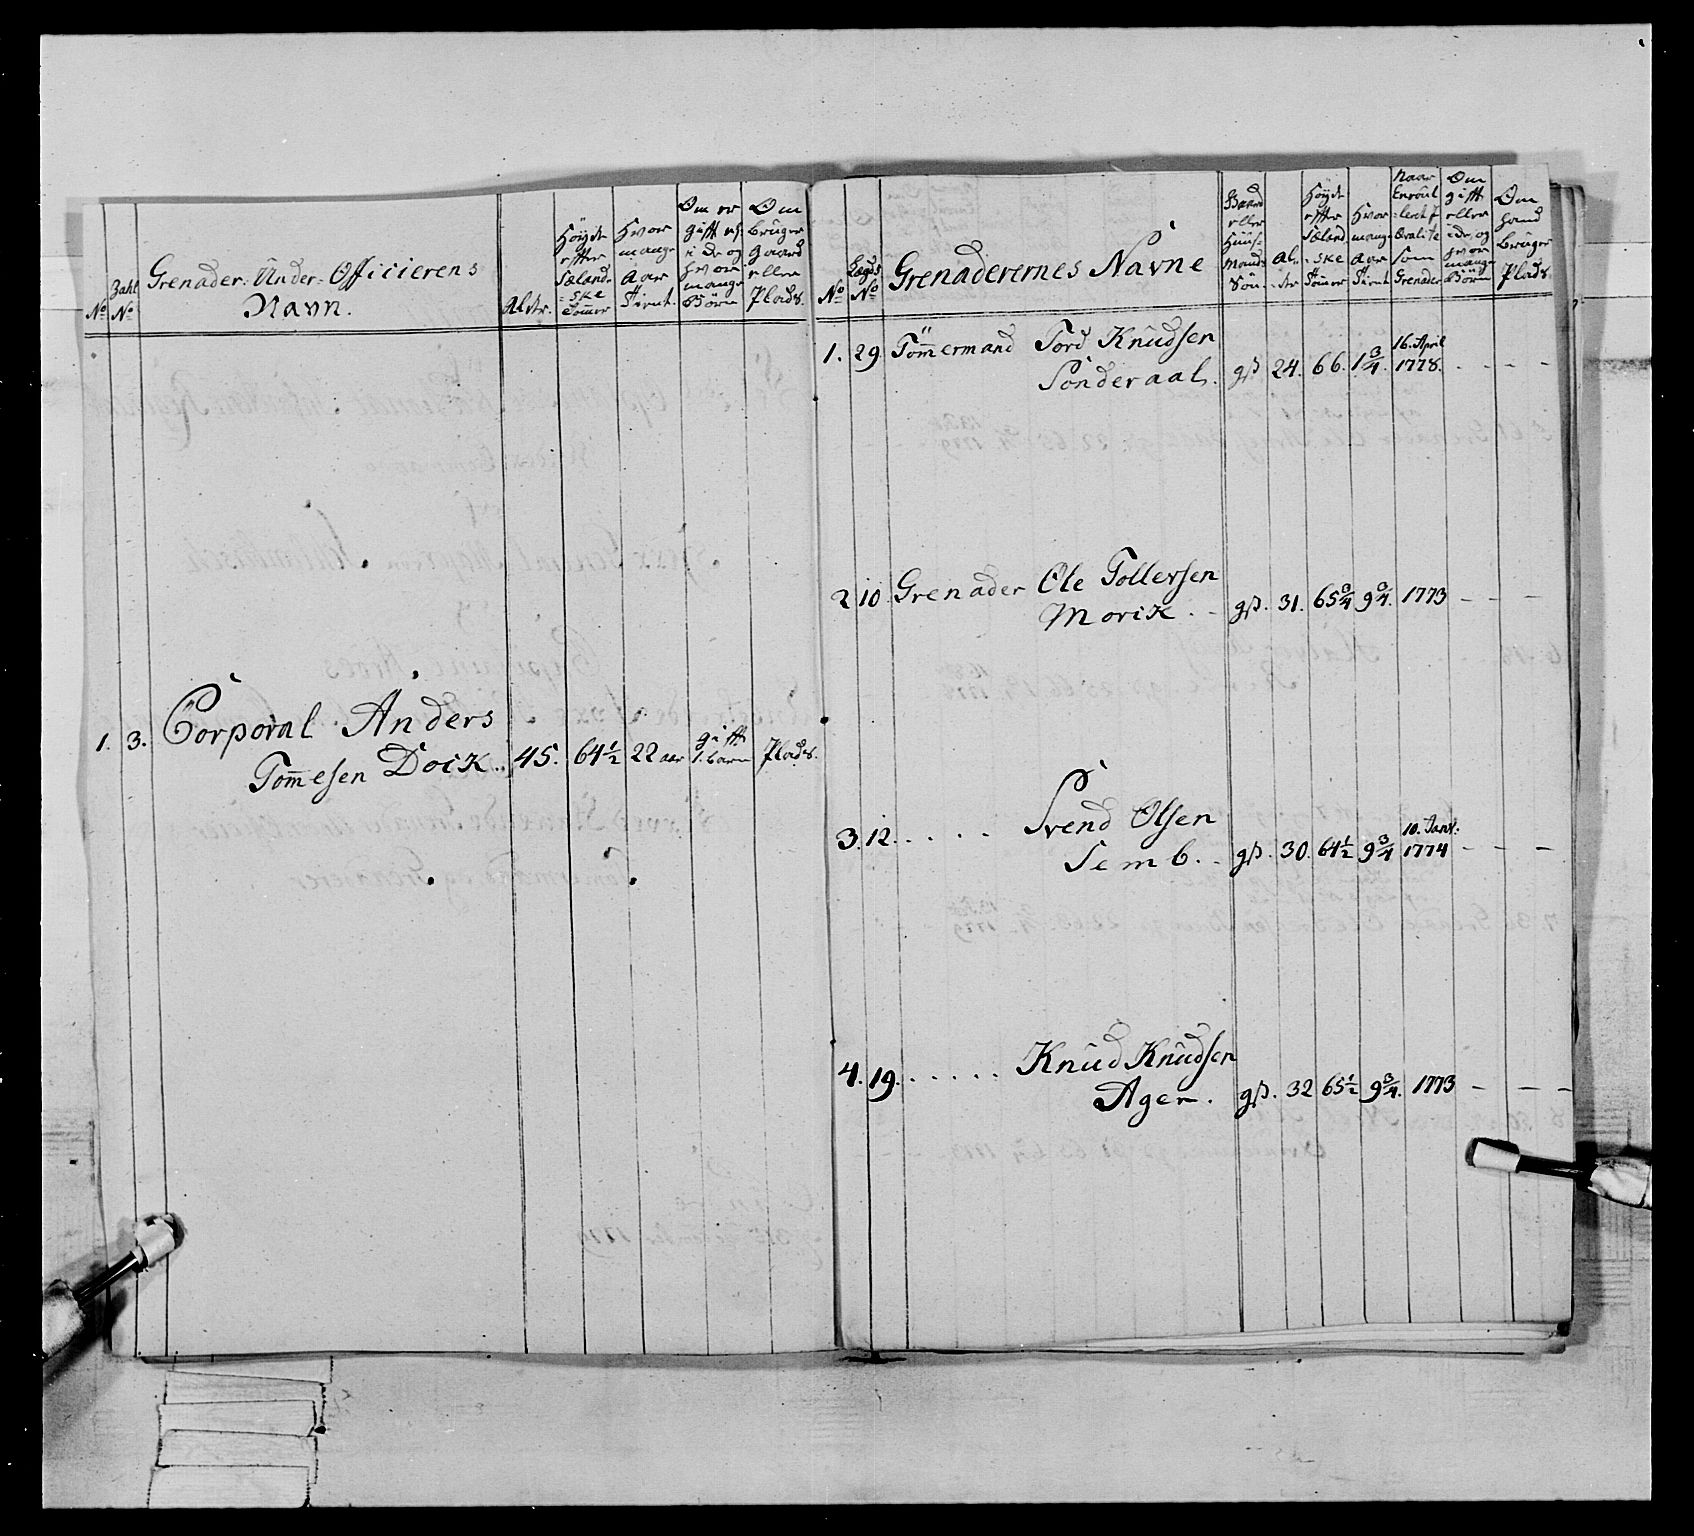 No
Zahl No
Grenader-Under-Officierens
Navn.
Alder.
Høyde efter Sælandske Tomer
Hvor mange Aar Tient.
Om er gift og i de og hvor mange Børn
Om bruger Gaard eller Plads.
1. 3. Corporal Anders
Tom̄esen Doik. 45. 64½ 22 aar gift 1. barn Plads.
No
Lægds No
Grenaderernes Navne
Gaard eller Huus-mands Søn
Alder
Høyde efter Sælandske Tomer
Hvor mange Aar Tient
Naar Enroullert i Qvalite Som Grenader
Om gift eller i de, og hvor mange Børn
Om hand bruger Plads.
1. 29. Töm̄ermand Tord Knudsen
Sönderaal. gβ 24. 66. 1¾. 16. April 1778. - - -
2 10 Grenader Ole Tollefsen
Morik. gβ. 31. 65¾ 9¾. 1773 - - -
3. 12. . . . . Svend Olsen
Semb. gβ. 30. 64½ 9¾ 10. Janv: 1774 - - -
4. 19. . . . . . Knud Knudsen
Ager. gβ. 32 65½ 9¾. 1773 - - -